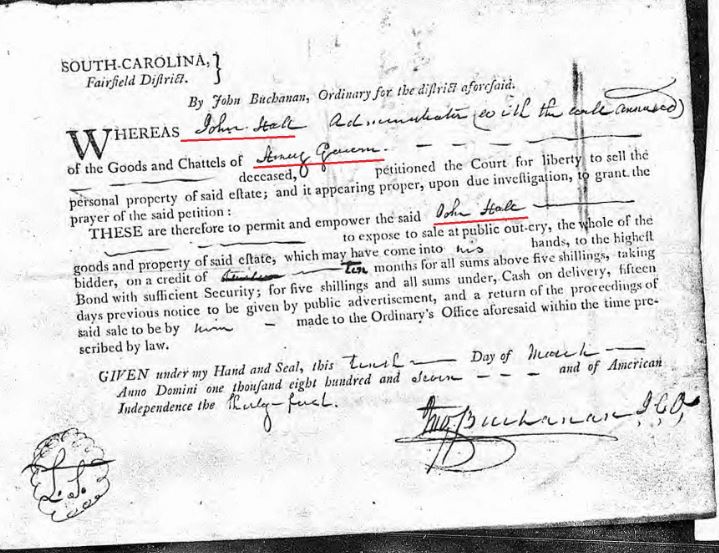 SOUTH-CAROLINA,}
Fairfield Diſtrict.
By John Buchanan, Ordinary for the diſtrict aforeſaid.
WHEREAS John Hall Administrator (with the will annexed)
of the Goods and Chattels of
deceased, petitioned the Court for liberty to sell the
perſonal property of said eſtate; and it appearing proper, upon due inveſtigation, to grant the
prayer of the said petition:
THESE are therefore to permit and empower the said John Hall
to expose to sale at public out-cry, the whole of the
goods and property of said eſtate, which may have come into his hands, to the higheſt
bidder, on a credit of ten months for all sums above five shillings, taking
Bond with sufficient Security; for five shillings and all sums under, Cash on delivery, fifteen
days previous notice to be given by public advertisement, and a return of the proceedings of
said sale to be by him made to the Ordinary's Office aforesaid within the time pre-
scribed by law.
GIVEN under my Hand and Seal, this tenth Day of March
Anno Domini one thouſand eight hundred and seven and of American
Independence the thirty-first.
Jno. Buchanan
L.S.